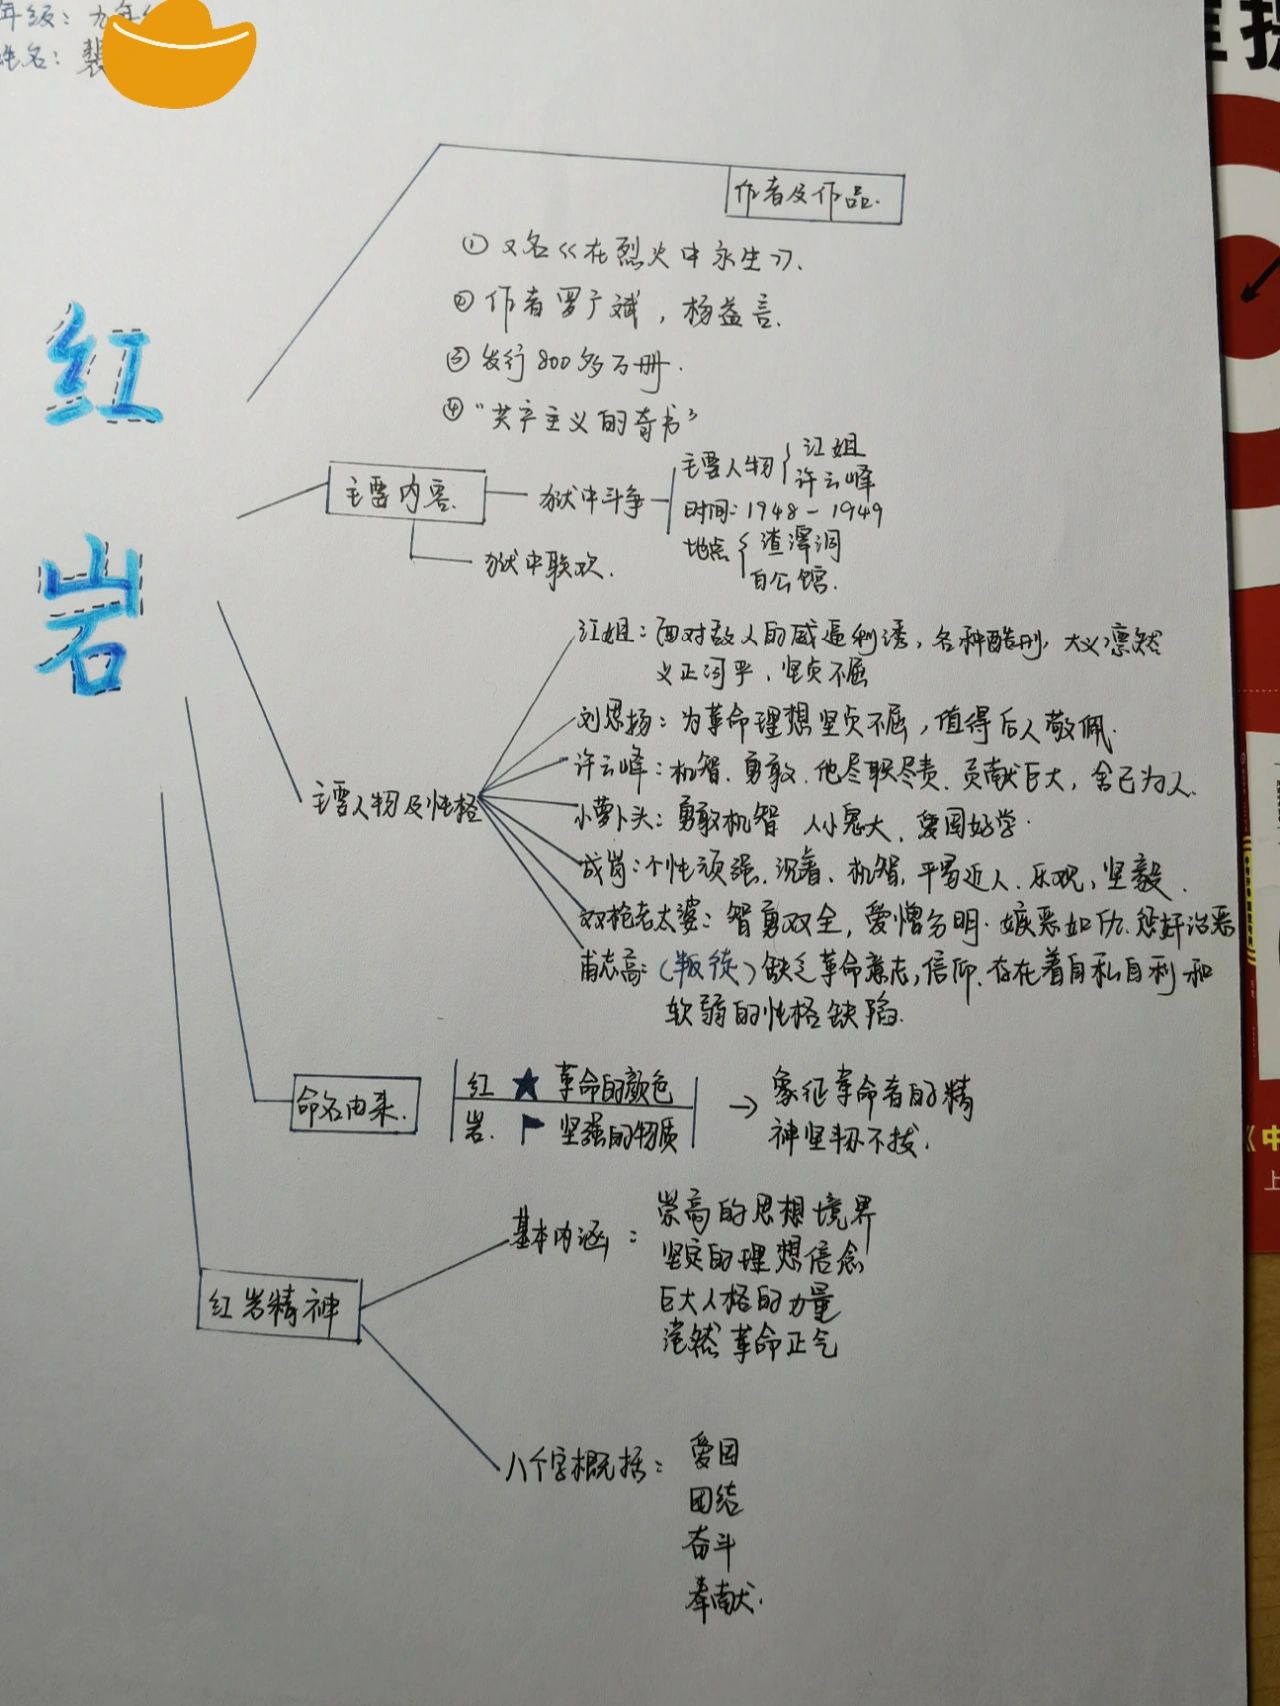 年级：九年
姓名：裴
红
岩
作者及作品.
① 又名《在烈火中永生》.
② 作者罗广斌，杨益言.
③ 发行800多万册.
④ "共产主义的奇书"
主要内容.
狱中斗争
主要人物
江姐
许云峰
时间：1948-1949
地点
渣滓洞
白公馆.
狱中联欢.
主要人物及性格
江姐：面对敌人的威逼利诱，各种酷刑，大义凛然
义正词严、坚贞不屈
刘思扬：为革命理想坚贞不屈，值得后人敬佩.
许云峰：机智、勇敢、他尽职尽责、贡献巨大，舍己为人.
小萝卜头：勇敢机智 人小鬼大、爱国好学.
成岗：个性顽强、沉着、机智，平易近人、乐观，坚毅.
双枪老太婆：智勇双全，爱憎分明.嫉恶如仇.惩奸治恶
甫志高：（叛徒）缺乏革命意志，信仰、存在着自私自利和
软弱的性格缺陷.
命名由来.
红 ★ 革命的颜色
岩. 坚强的物质
→ 象征革命者的精
神坚韧不拔.
红岩精神
基本内涵：
崇高的思想境界
坚定的理想信念
巨大人格的力量
浩然革命正气
八个字概括：
爱国
团结
奋斗
奉献.
《中
上